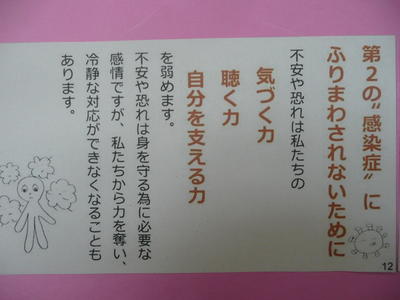 第2の“感染症”に
ふりまわされないために
不安や恐れは私たちの
気づく力
聴く力
自分を支える力
を弱めます。
不安や恐れは身を守る為に必要な
感情ですが、私たちから力を奪い、
冷静な対応ができなくなることも
あります。
12